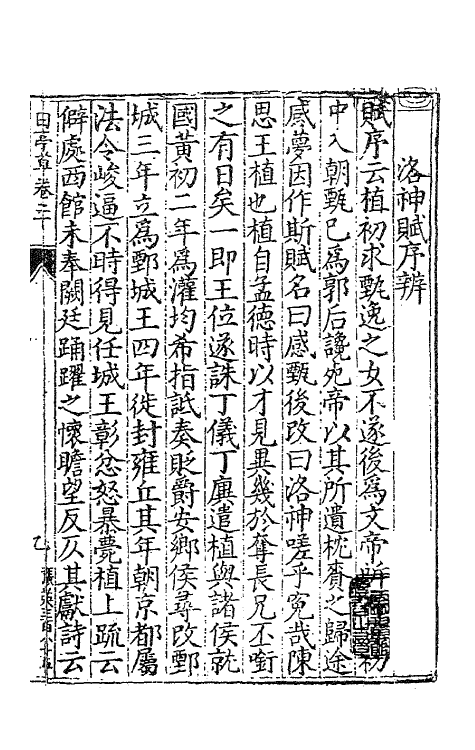 洛神賦序辨
賦序云植初求甄逸之女不遂後為文帝所初
中入朝甄已為郭后讒死帝以其所遺枕賚之歸途
感夢因作斯賦名曰感甄後改曰洛神嗟乎冤哉陳
思王植也植自孟德時以才見異幾於奪長兄丕銜
之有日矣一即王位遂誅丁儀丁廙遣植與諸侯就
國黃初二年為灌均希指詆奏貶爵安鄉侯尋改鄄
城三年立為鄄城王四年徙封雍丘其年朝京都屬
法令峻逼不時得見任城王彰忿怒暴薨植上疏云
僻處西館未奉闕廷踊躍之懷瞻望反仄其獻詩云
田亭草卷二十
乙